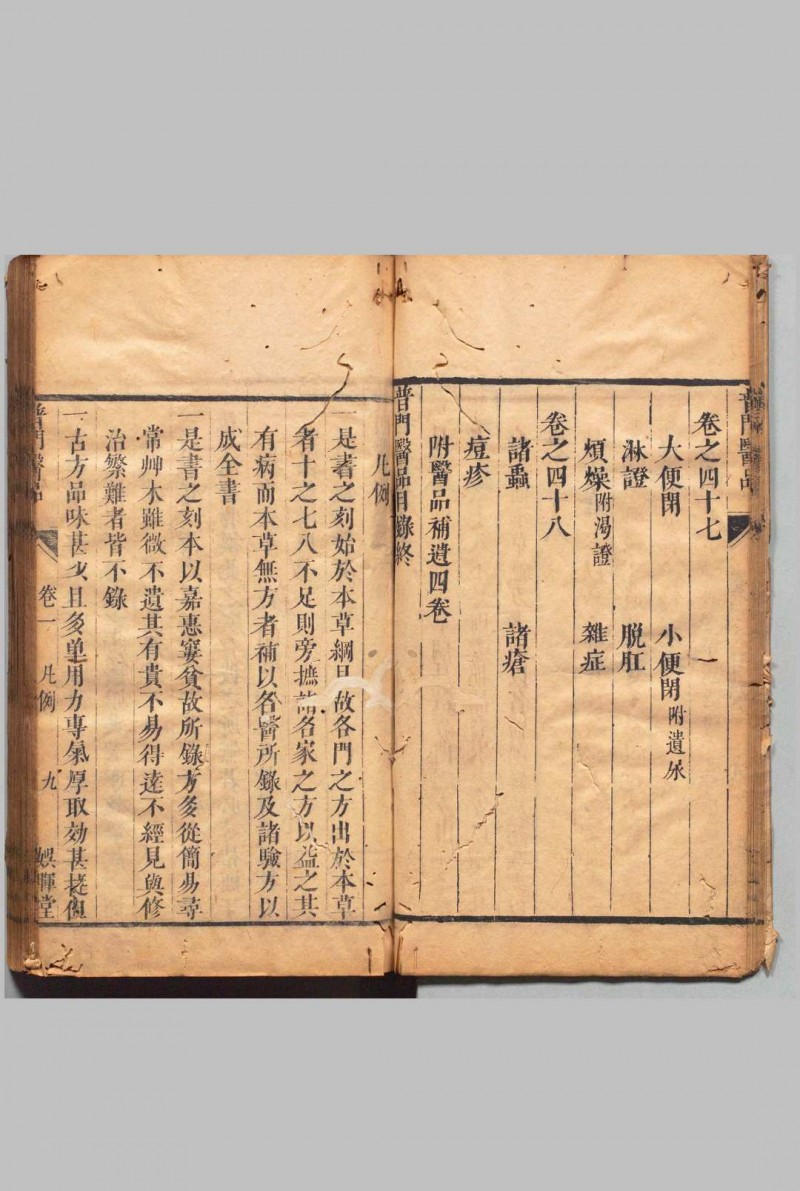 普門醫品
卷之四十七
大便閉　小便閉附遺尿
淋證　脫肛
煩燥附渴證　雜症
卷之四十八
諸蟲　諸瘡
痘疹
附醫品補遺四卷
普門醫品目錄終
凡例
一是書之刻始於本草綱目故各門之方出於本草
者十之七八不足則旁摭諸名家之方以益之其
有病而本草無方者補以各醫所錄及諸驗方以
成全書
一是書之刻本以嘉惠窭貧故所錄方多從簡易尋
常艸木雖微不遺其有貴不易得逹不經見與修
治繁難者皆不錄
一古方品味甚少且多單用力專氣厚取効甚㨗但
普門醫品　卷一　凡例　九　娛暉堂